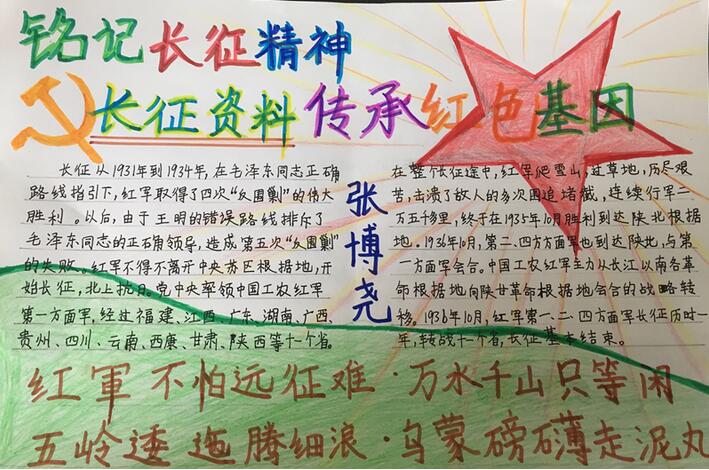 铭记长征精神
长征资料 传承红色基因
长征从1931年到1934年，在毛泽东同志正确
路线指引下，红军取得了四次“反围剿”的伟大
胜利。以后，由于王明的错误路线排斥了
毛泽东同志的正确领导，造成第五次“反围剿”
的失败。红军不得不离开中央苏区根据地，开
始长征，北上抗日。党中央率领中国工农红军
第一方面军，经过福建、江西、广东、湖南、广西、
贵州、四川、云南、西康、甘肃、陕西等十一个省。
张博尧
在整个长征途中，红军爬雪山，过草地，历尽艰
苦，击溃了敌人的多次围追堵截，连续行军二
万五千里，终于在1935年10月胜利到达陕北根据
地。1936年10月，第二、四方面军也到达陕北，与第
一方面军会合。中国工农红军主力从长江以南各革
命根据地向陕甘革命根据地会合的战略转
移。1936年10月，红军第一、二、四方面军长征历时一
年，转战十一个省，长征基本结束。
红軍不怕远征难·万水千山只等闲
五岭逶迤腾细浪·乌蒙磅礴走泥丸